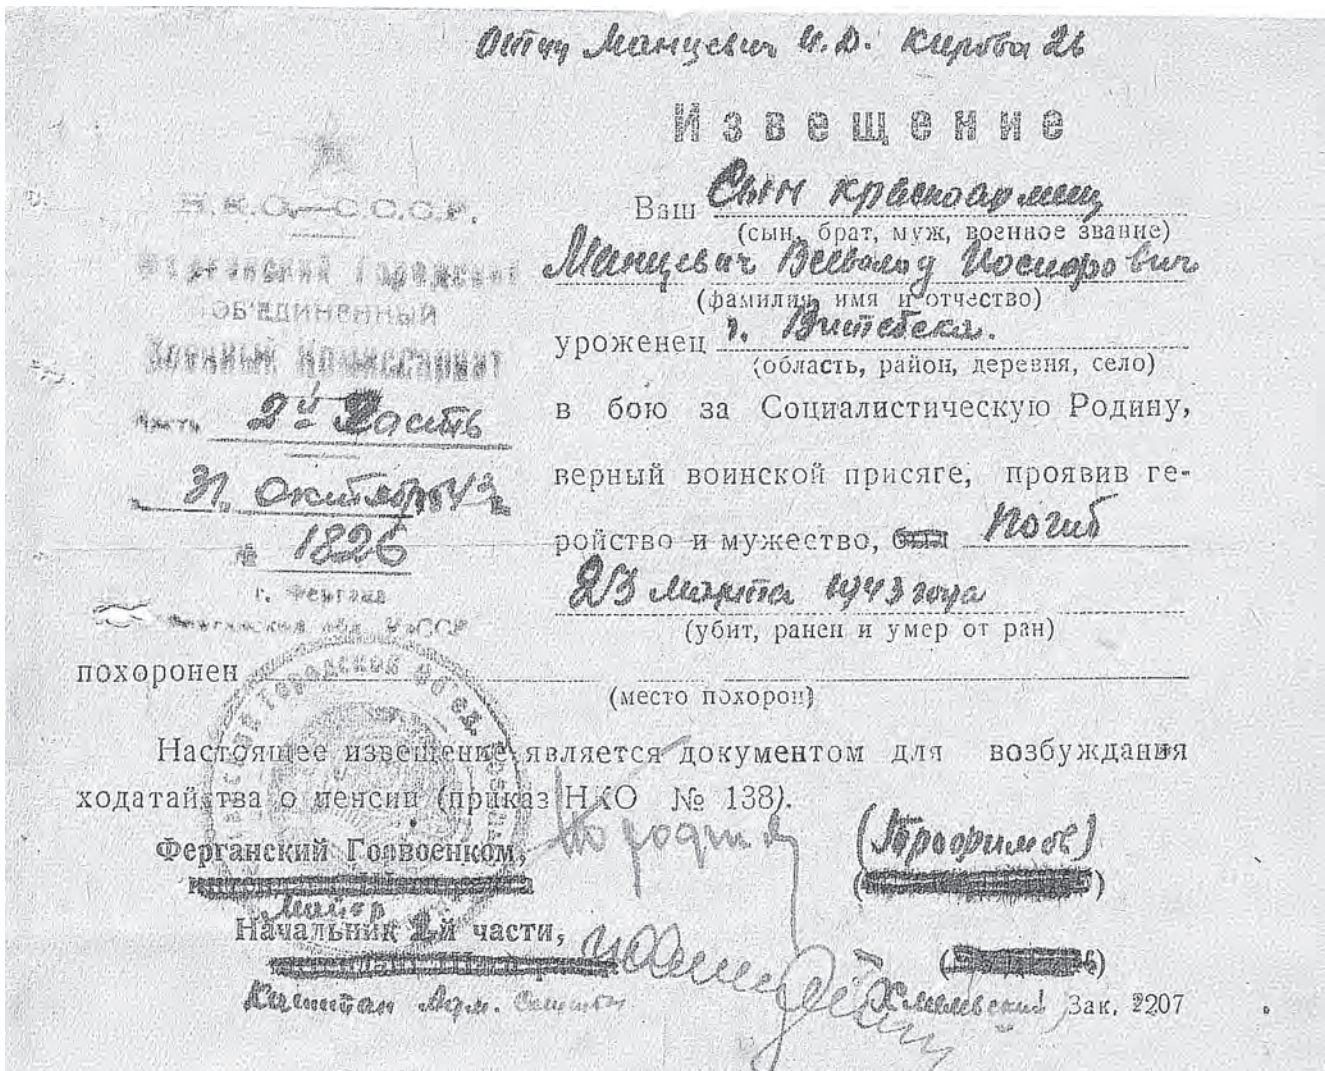 Отцу Манцевич И.Д. Кирова 26
Извещение
Н.К.О.—С.С.С.Р.
Ферганский Городской
ОБ'ЕДИНЕННЫЙ
Военный Комиссариат
Часть 2й Часть
31 октября 43 г.
№ 1826
г. Фергана
Ферганская обл. УзССР
Ваш Сын красноармеец
(сын, брат, муж, военное звание)
Манцевич Всеволод Иосифович
(фамилия, имя и отчество)
уроженец г. Витебска.
(область, район, деревня, село)
в бою за Социалистическую Родину,
верный воинской присяге, проявив ге-
ройство и мужество, был погиб
23 марта 1943 года
(убит, ранен и умер от ран)
похоронен
(место похорон)
Настоящее извещение является документом для возбуждания
ходатайства о пенсии (приказ НКО № 138).
Ферганский Горвоенком,
(Трофимов)
Майор
Начальник 2й части,
Капитан Адм. Службы
Хмелевский
Зак. 2207